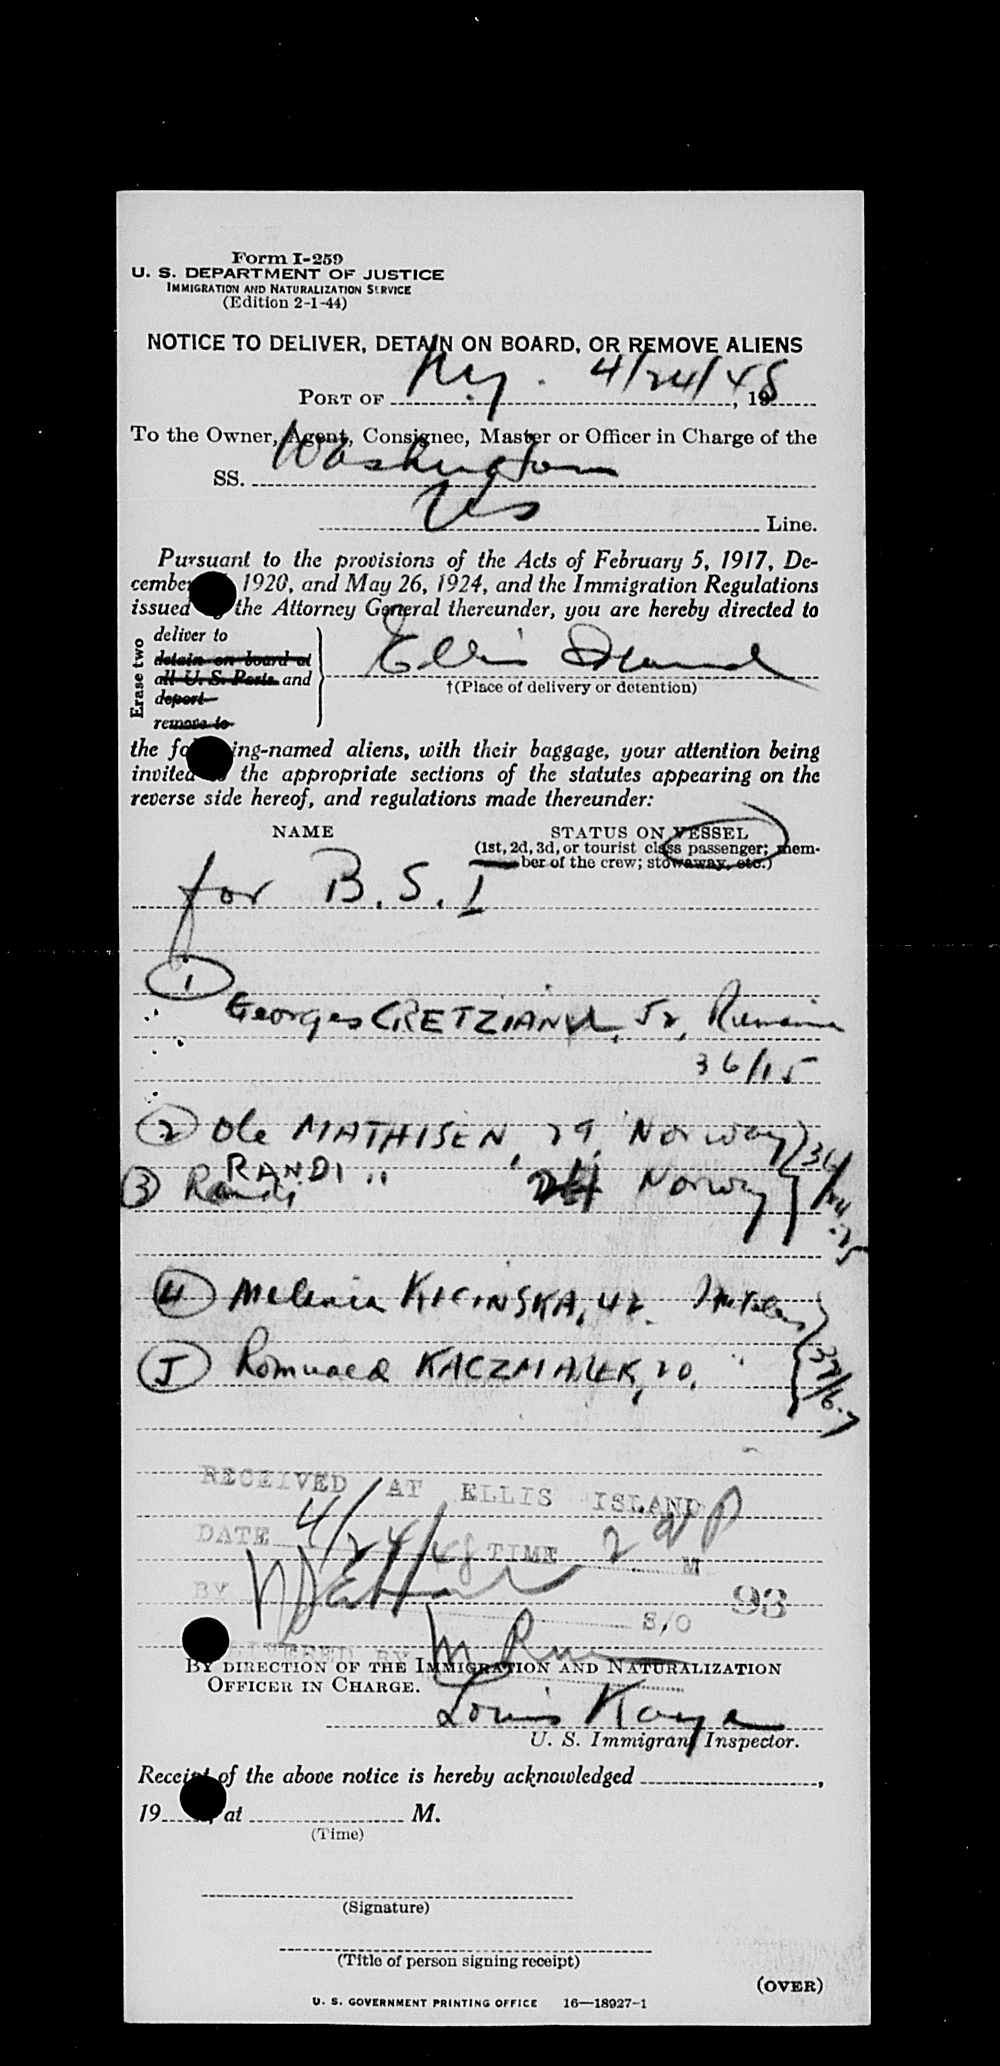 Form I-259
U. S. DEPARTMENT OF JUSTICE
IMMIGRATION AND NATURALIZATION SERVICE
(Edition 2-1-44)
NOTICE TO DELIVER, DETAIN ON BOARD, OR REMOVE ALIENS
PORT OF NY. 4/24/48, 19
To the Owner, Agent, Consignee, Master or Officer in Charge of the
SS. Washington
US Line.
Pursuant to the provisions of the Acts of February 5, 1917, De-
cember 1920, and May 26, 1924, and the Immigration Regulations
issued the Attorney General thereunder, you are hereby directed to
Erase two
deliver to
detain on board at
all U. S. Ports and
deport
remove to
Ellis Island
†(Place of delivery or detention)
the following-named aliens, with their baggage, your attention being
invited the appropriate sections of the statutes appearing on the
reverse side hereof, and regulations made thereunder:
NAME STATUS ON VESSEL
(1st, 2d, 3d, or tourist class passenger; mem-
ber of the crew; stowaway, etc.)
for B. S. I
1
Georges CRETZIANU, 52,
36/15
2 Ole MATHISEN, 29, Norway
3 Randi RANDI " 24 Norway
4 Melenia KICINSKA, 42.
5 Romuald KACZMAREK, 20. "
RECEIVED AT ELLIS ISLAND
DATE 4/24/48 TIME 2 P M
BY S/O 93
DELIVERED BY
BY DIRECTION OF THE IMMIGRATION AND NATURALIZATION
OFFICER IN CHARGE.
Louis Kaye
U. S. Immigrant Inspector.
Receipt of the above notice is hereby acknowledged ,
19 , at M.
(Time)
(Signature)
(Title of person signing receipt)
(OVER)
U. S. GOVERNMENT PRINTING OFFICE 16—18927-1